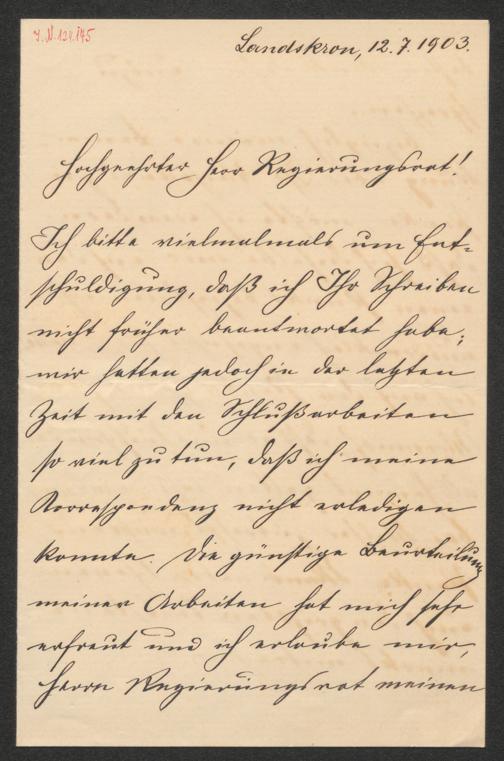 I.N. 121.145
Landskron, 12.7.1903.
Hochgeehrter Herr Regierungsrat!
Ich bitte vielmalmals um Ent-
schuldigung, daß ich Ihr Schreiben
nicht früher beantwortet habe;
wir hatten jedoch in der letzten
Zeit mit den Schlußarbeiten
so viel zu tun, daß ich meine
Korrespondenz nicht erledigen
konnte. Die günstige Beurteilung
meiner Arbeiten hat mich sehr
erfreut und ich erlaube mir,
Herrn Regierungsrat meinen